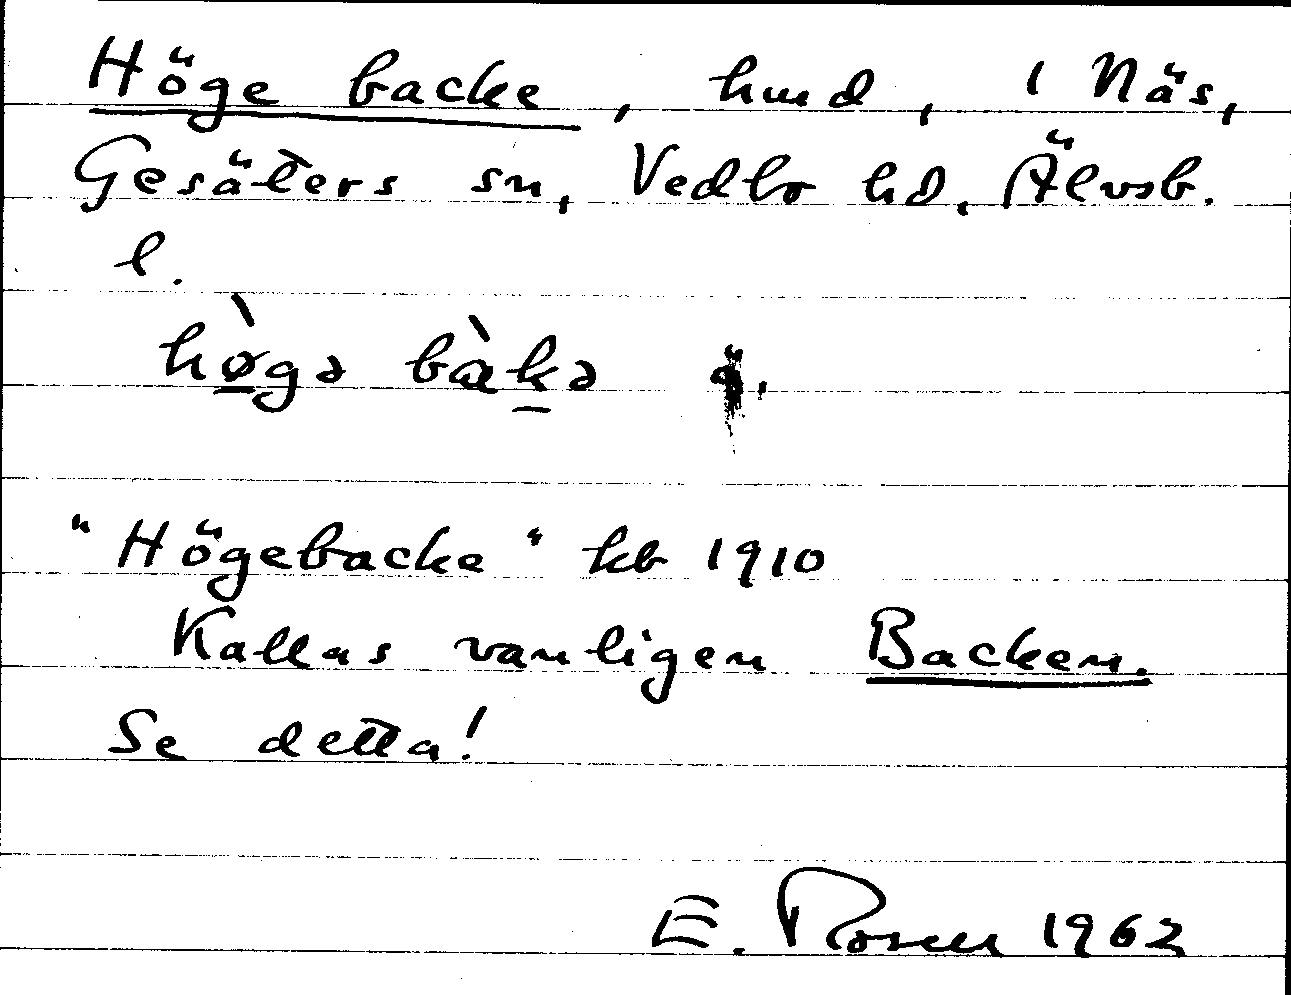 Höge backe, hmd, 1 Näs,
Gesäters sn, Vedbo hd, Älvsb.
l.
hø̀gə bàkə
"Högebacke" kb 1910
Kallas vanligen Backen.
Se detta!
E. Rosen 1962